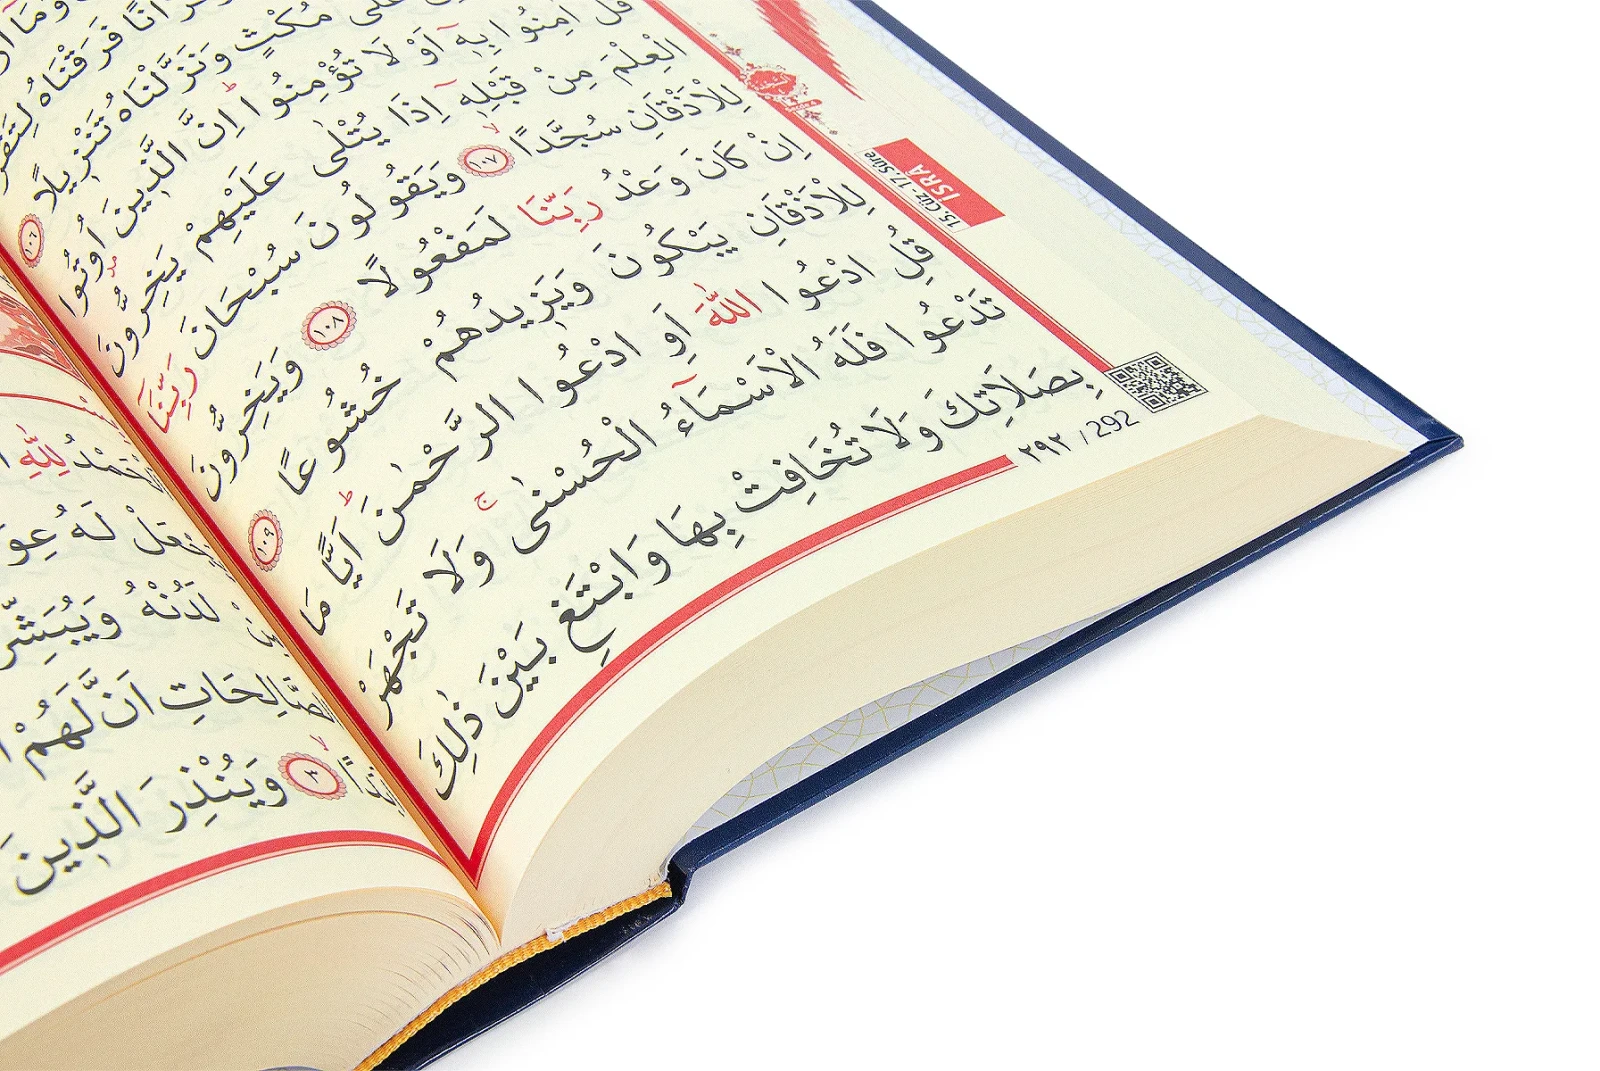 فَرَقْنَاهُ
عَلٰى مُكْثٍ وَنَزَّلْنَاهُ تَنْز۪يلًا ١٠٦
قُلْ اٰمِنُوا بِه۪ٓ اَوْ لَا تُؤْمِنُواۜ اِنَّ الَّذ۪ينَ اُو۫تُوا
الْعِلْمَ مِنْ قَبْلِه۪ٓ اِذَا يُتْلٰى عَلَيْهِمْ يَخِرُّونَ
لِلْاَذْقَانِ سُجَّدًاۙ ١٠٧ وَيَقُولُونَ سُبْحَانَ رَبِّنَٓا
اِنْ كَانَ وَعْدُ رَبِّنَا لَمَفْعُولًا ١٠٨ وَيَخِرُّونَ
لِلْاَذْقَانِ يَبْكُونَ وَيَز۪يدُهُمْ خُشُوعًا ١٠٩
قُلِ ادْعُوا اللّٰهَ اَوِ ادْعُوا الرَّحْمٰنَۜ اَيًّا مَا
تَدْعُوا فَلَهُ الْاَسْمَٓاءُ الْحُسْنٰىۚ وَلَا تَجْهَرْ
بِصَلَاتِكَ وَلَا تُخَافِتْ بِهَا وَابْتَغِ بَيْنَ ذٰلِكَ
15. Cüz - 17. Sûre
İSRÂ
٢٩٢ / 292
لِلّٰهِ
لَهُ
لَدُنْهُ وَيُبَشِّرَ
الصَّالِحَاتِ اَنَّ لَهُمْ
٢ وَيُنْذِرَ الَّذ۪ينَ